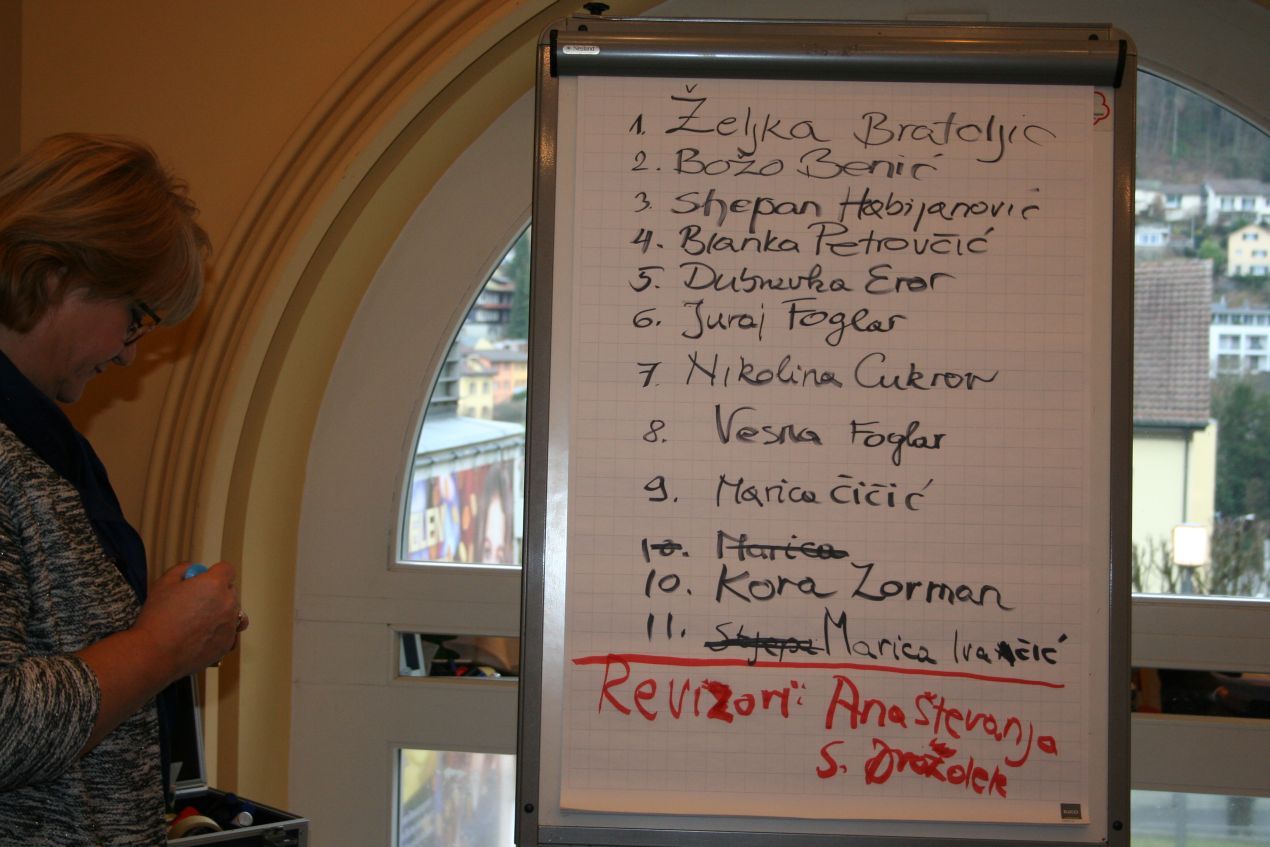 Neuland
1. Željka Bratoljić
2. Božo Benić
3 Stjepan Habijanović
4. Blanka Petrovčić
5. Dubravka Eror
6. Juraj Foglar
7. Nikolina Cukrov
8. Vesna Foglar
9. Marica Čičić
10. Marica
10. Kora Zorman
11. Stjepa Marica Ivančić
Revizori: Ana Števanja
S. Drožolek
ELEN